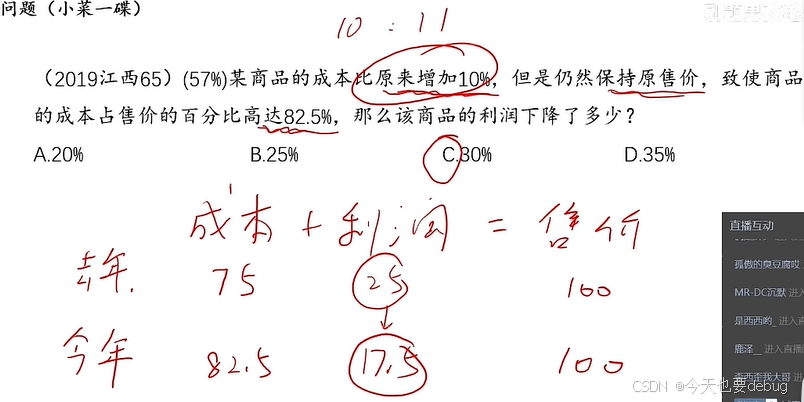 问题（小菜一碟）
10 : 11
（2019江西65）(57%)某商品的成本比原来增加10%，但是仍然保持原售价，致使商品
的成本占售价的百分比高达82.5%，那么该商品的利润下降了多少？
A.20% B.25% C.30% D.35%
成本 + 利润 = 售价
去年. 75 25 100
今年 82.5 17.5 100
直播互动
孤傲的臭豆腐哎
MR-DC沉默 进入
是西西哟_ 进入直
鹿泽__ 进入直播
歪西歪我大哥 进
CSDN @今天也要debug